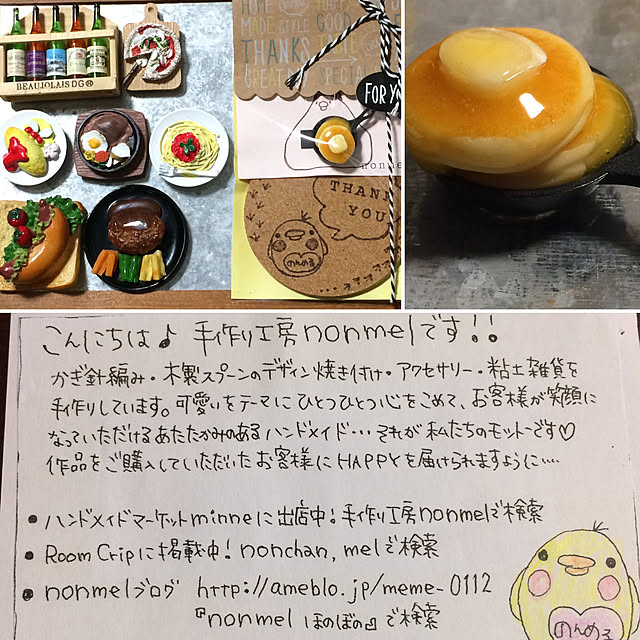 BEAUJOLAIS DG®
HOME
MADE STYLE GOOD
THANKS
GREAT SPECIAL
FOR YOU
nonmel
THANK
YOU
のんめる
こんにちは♪ 手作り工房nonmelです!!
かぎ針編み・木製スプーンのデザイン焼き付け・アクセサリー・粘土雑貨を
手作りしています。可愛いをテーマにひとつひとつ心をこめて、お客様が笑顔に
なっていただけるあたたかみのあるハンドメイド…それが私たちのモットーです♡
作品をご購入していただいたお客様にHAPPYを届けられますように….
• ハンドメイドマーケットminneに出店中!手作り工房nonmelで検索
• Room Cripに掲載中! nonchan,melで検索
• nonmelブログ http://ameblo.jp/meme-0112
『nonmel ほのぼの』で検索
のんめる